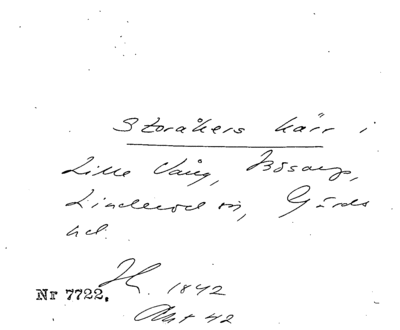 Storåkers kärr i
Lille Vång, Bösarp,
Linderöd sn, Gärds
hd.
Nr 7722. H. 1842
Akt 42